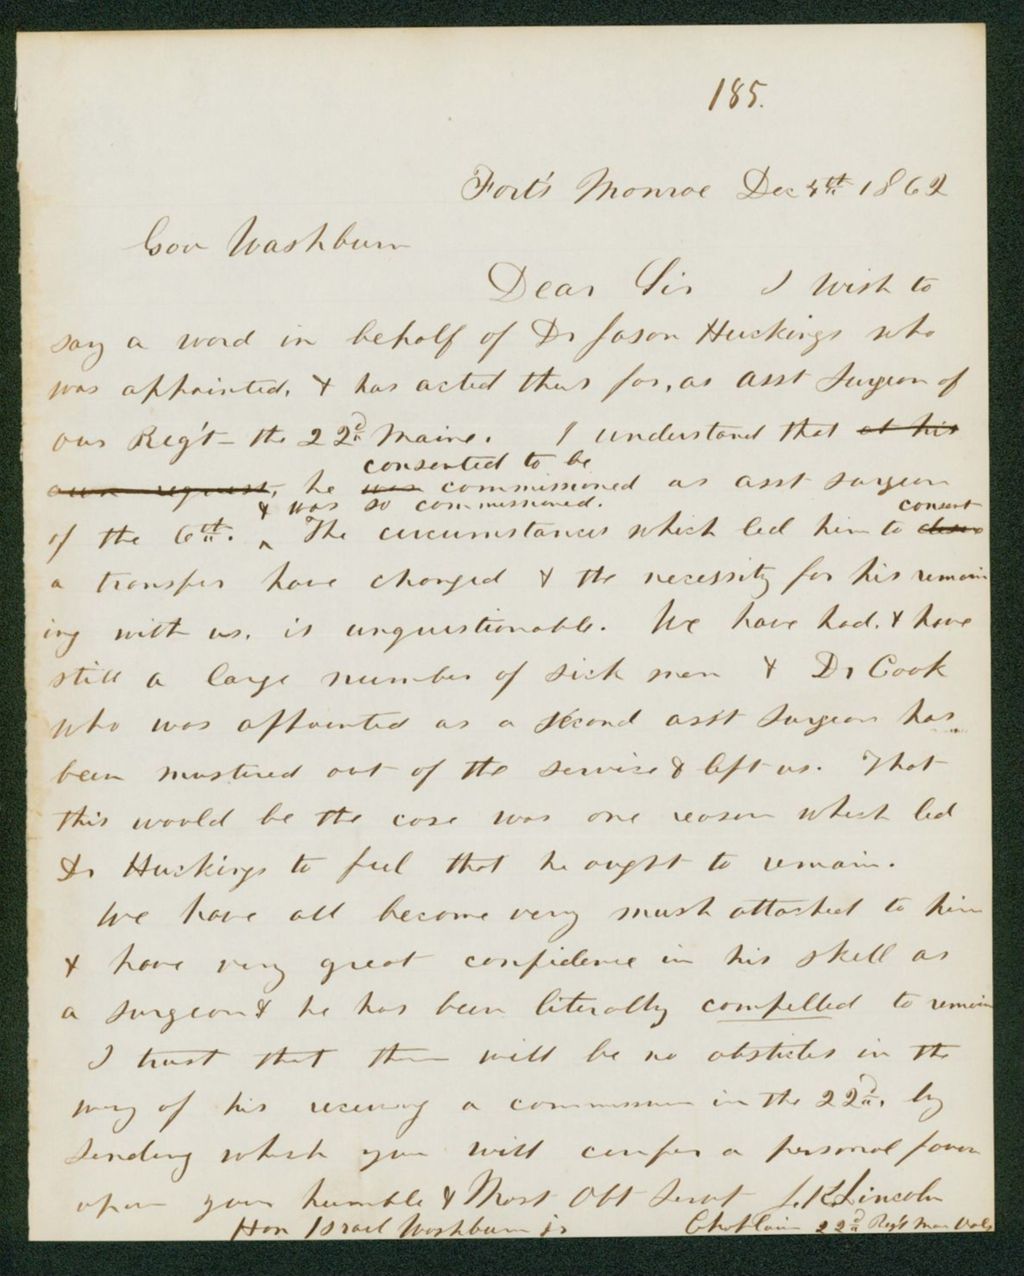 185.
Fort's Monroe Dec 4th 1862
Gov Washburn
Dear Sir I wish to
say a word in behalf of Dr Jason Huckings who
was appointed, & has acted thus far, as asst Surgeon of
our Reg't - the 22d Maine. I understand that at his
own request, he was consented to be commissioned as asst surgeon
of the 6th. & was so commissioned. The circumstances which led him to consent
a transfer have changed & the necessity for his remain
ing with us, is unquestionable. We have had, & have
still a large number of sick men & Dr Cook
who was appointed as a second asst surgeon has
been mustered out of the service & left us. That
this would be the case was one reason which led
Dr Huckings to feel that he ought to remain.
We have all become very much attached to him
& have very great confidence in his skill as
a surgeon & he has been literally compelled to remain
I trust that there will be no obsticles in the
way of his receiving a commission in the 22d, by
sending which you will confer a personal favor
upon your humble & Most Obt Servt J. K. Lincoln
Hon Israel Washburn jr Chaplain 22d Reg't Maine Vols